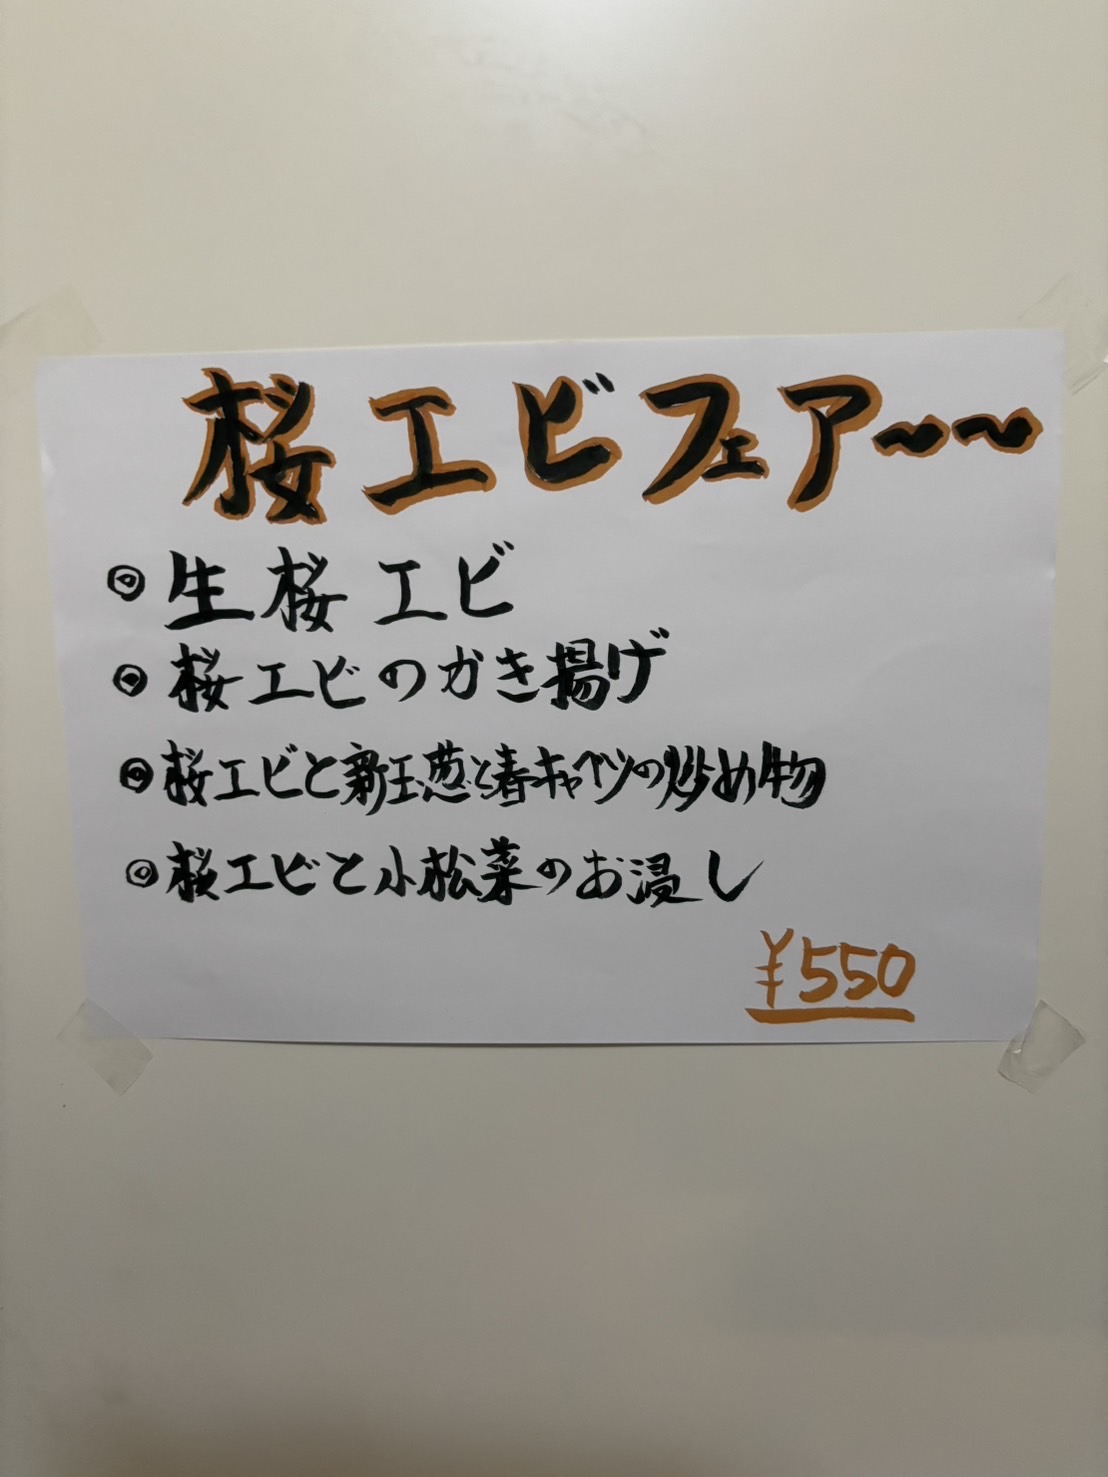 桜エビフェア〜〜
◎生桜エビ
◎桜エビのかき揚げ
◎桜エビと新玉葱と春キャベツの炒め物
◎桜エビと小松菜のお浸し
¥550